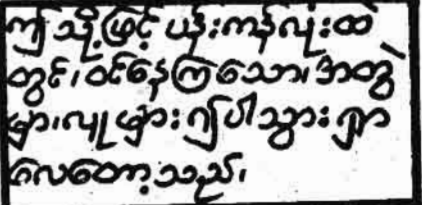 ဤသို့ဖြင့် ပန်းကန်လုံးထဲ
တွင်၊ ဝင်နေကြသော၊ အတွဲ
များ၊ လူများ ၅ ပါသွား ရှာ
လေတော့သည်၊